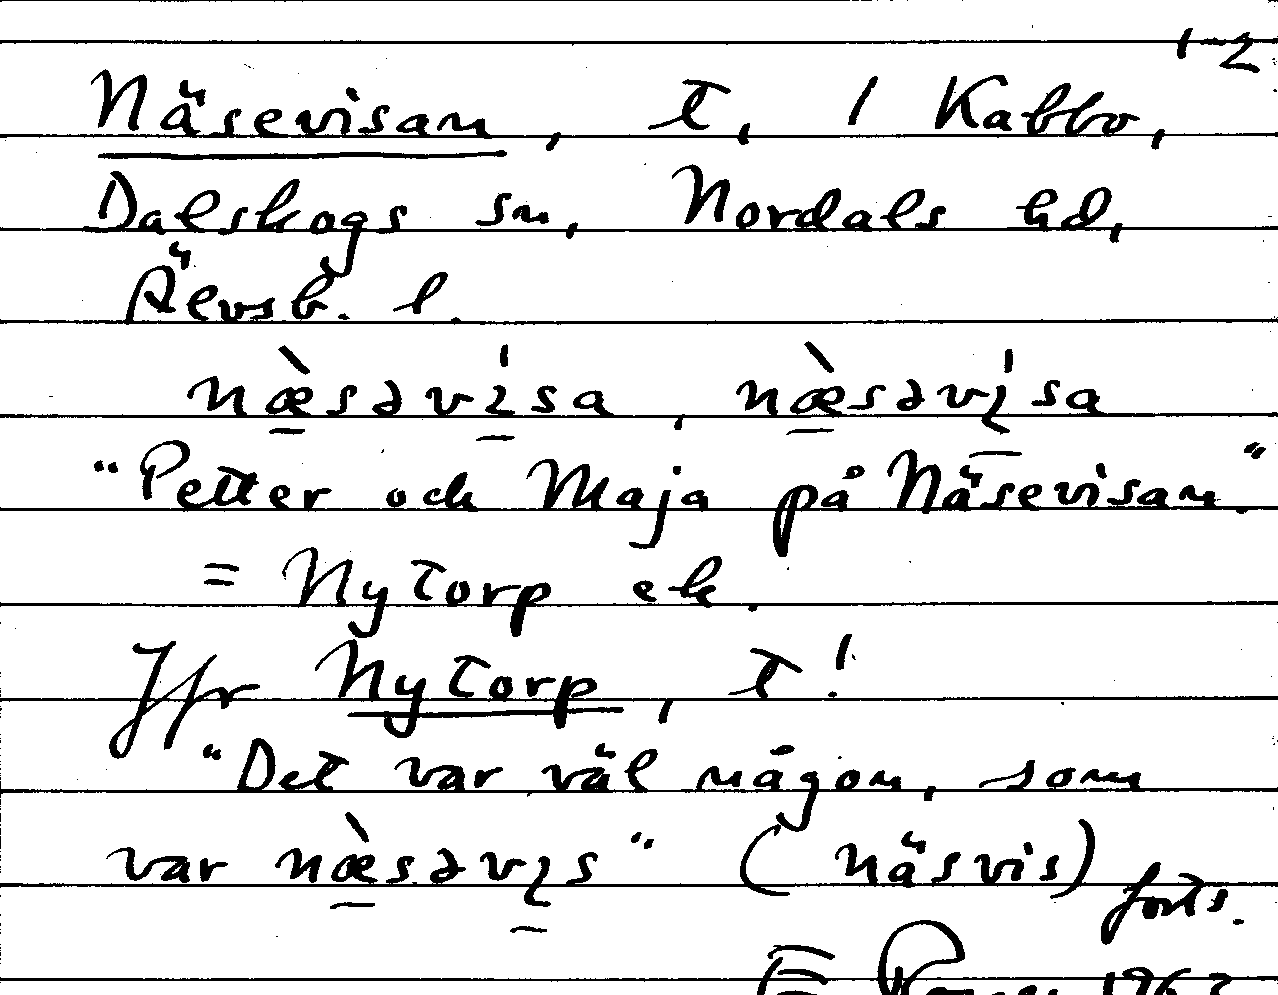 1-2
Näsevisan, t, 1 Kabbo,
Dalskogs sn, Nordals hd,
Älvsb. l.
næ̀səvi̍sa, næ̀səvi̍sa
"Petter och Maja på Näsevisan."
= Nytorp ek.
Jfr Nytorp, t!
"Det var väl någon, som
var næ̀səvis" (näsvis)
forts.